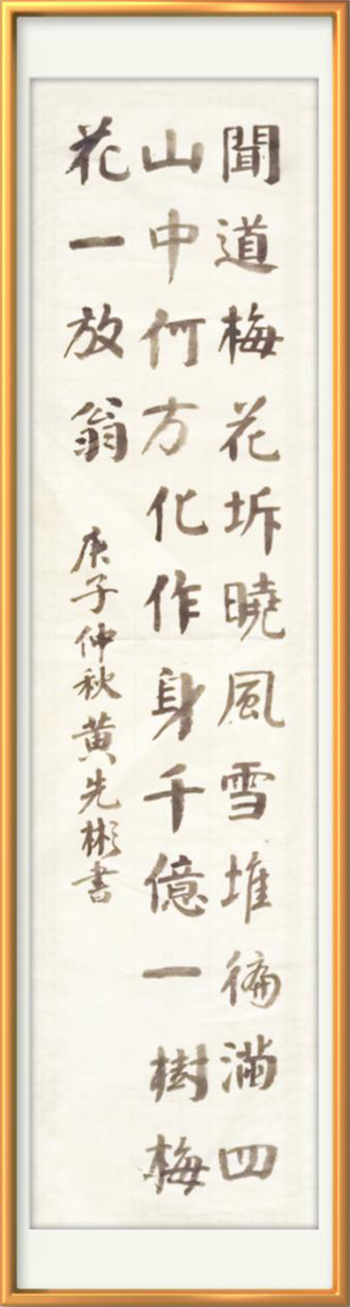 聞道梅花坼曉風雪堆徧滿四
山中何方化作身千億一樹梅
花一放翁
庚子仲秋黄先彬書